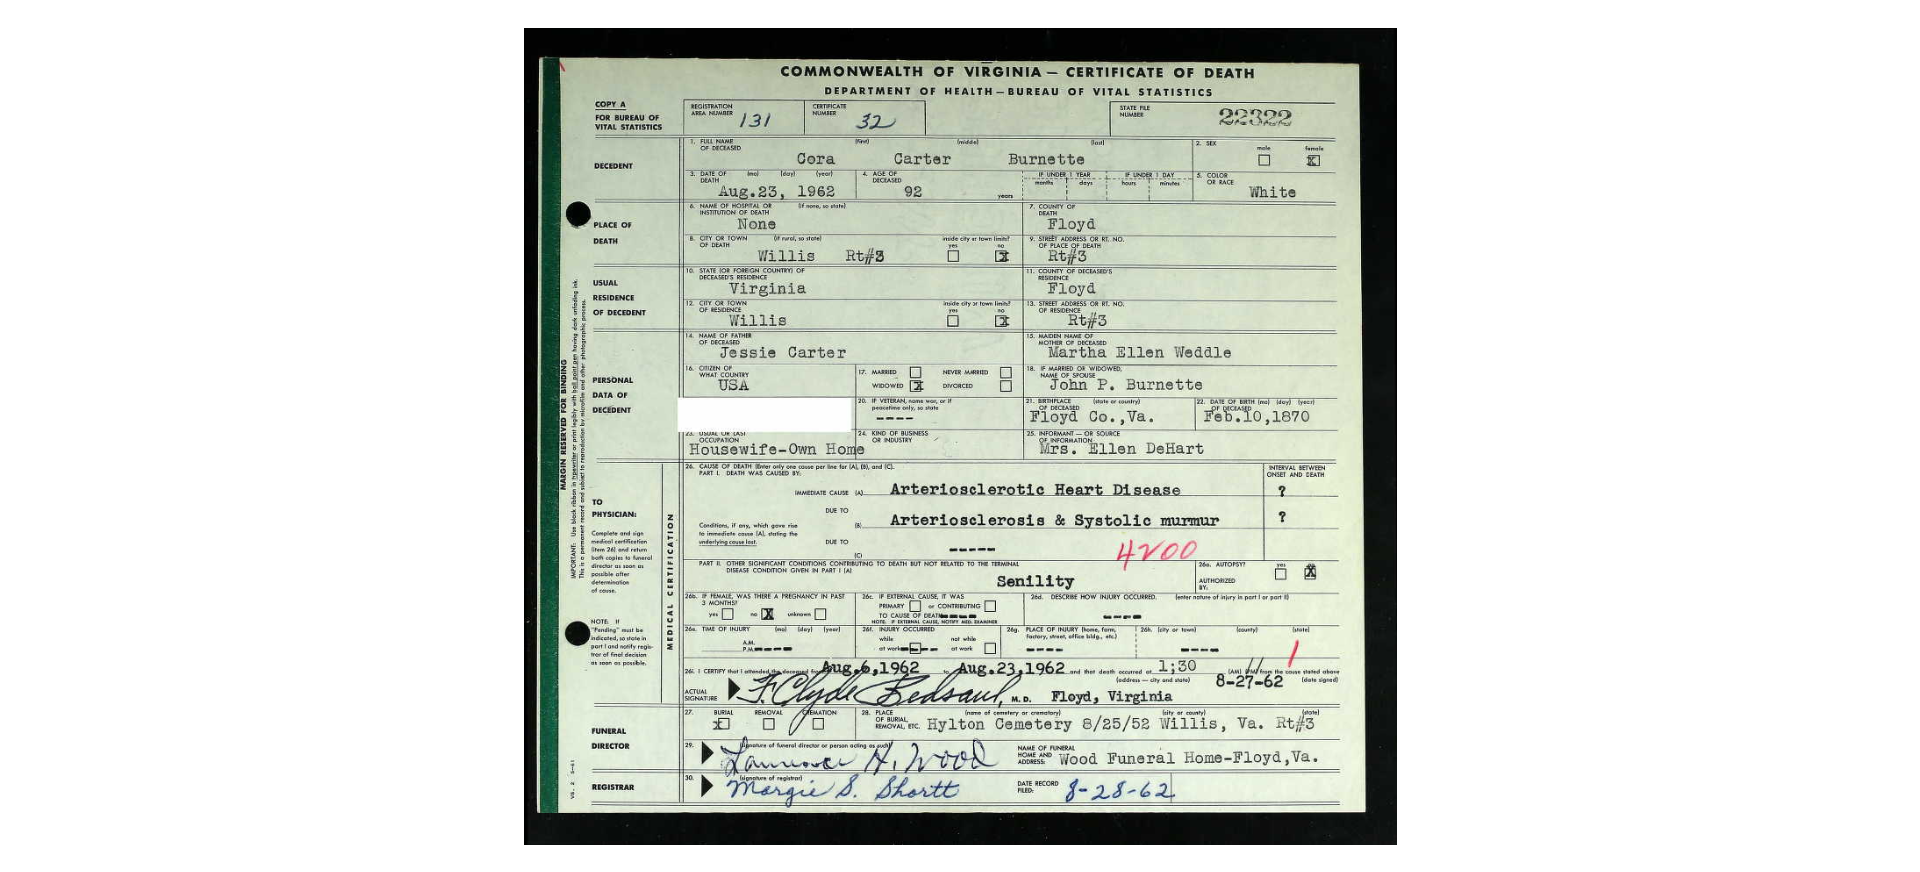 COMMONWEALTH OF VIRGINIA — CERTIFICATE OF DEATH
DEPARTMENT OF HEALTH—BUREAU OF VITAL STATISTICS
COPY A
FOR BUREAU OF
VITAL STATISTICS
REGISTRATION
AREA NUMBER 131
CERTIFICATE
NUMBER 32
STATE FILE
NUMBER 22322
DECEDENT
1. FULL NAME (first) (middle) (last)
OF DECEASED
Cora Carter Burnette
2. SEX male female X
3. DATE OF (mo) (day) (year)
DEATH
Aug.23, 1962
4. AGE OF
DECEASED
92 years
IF UNDER 1 YEAR IF UNDER 1 DAY
months days hours minutes
5. COLOR
OR RACE
White
PLACE OF
DEATH
6. NAME OF HOSPITAL OR (if none, so state)
INSTITUTION OF DEATH
None
7. COUNTY OF
DEATH
Floyd
8. CITY OR TOWN (if rural, so state) inside city or town limits?
OF DEATH yes no
Willis Rt#3 X
9. STREET ADDRESS OR RT. NO.
OF PLACE OF DEATH
Rt#3
USUAL
RESIDENCE
OF DECEDENT
10. STATE (OR FOREIGN COUNTRY) OF
DECEASED'S RESIDENCE
Virginia
11. COUNTY OF DECEASED'S
RESIDENCE
Floyd
12. CITY OR TOWN inside city or town limits?
OF RESIDENCE yes no
Willis X
13. STREET ADDRESS OR RT. NO.
OF RESIDENCE
Rt#3
PERSONAL
DATA OF
DECEDENT
14. NAME OF FATHER
OF DECEASED
Jessie Carter
15. MAIDEN NAME OF
MOTHER OF DECEASED
Martha Ellen Weddle
16. CITIZEN OF
WHAT COUNTRY
USA
17. MARRIED NEVER MARRIED
WIDOWED X DIVORCED
18. IF MARRIED OR WIDOWED,
NAME OF SPOUSE
John P. Burnette
20. IF VETERAN, name war, or if
peacetime only, so state
----
21. BIRTHPLACE (state or country)
OF DECEASED
Floyd Co.,Va.
22. DATE OF BIRTH (mo) (day) (year)
OF DECEASED
Feb.10,1870
23. USUAL OR LAST
OCCUPATION
Housewife-Own Home
24. KIND OF BUSINESS
OR INDUSTRY
25. INFORMANT — OR SOURCE
OF INFORMATION
Mrs. Ellen DeHart
MARGIN RESERVED FOR BINDING
TO
PHYSICIAN:
Complete and sign
medical certification
(item 26) and return
both copies to funeral
director as soon as
possible after
determination
of cause.
NOTE: If
"Pending" must be
indicated, so state in
part I and notify regis-
trar of final decision
as soon as possible.
MEDICAL CERTIFICATION
26. CAUSE OF DEATH (Enter only one cause per line for (A), (B), and (C).
PART I. DEATH WAS CAUSED BY:
INTERVAL BETWEEN
ONSET AND DEATH
IMMEDIATE CAUSE (A) Arteriosclerotic Heart Disease ?
DUE TO
Conditions, if any, which gave rise
to immediate cause (A), stating the
underlying cause last.
(B) Arteriosclerosis & Systolic murmur ?
DUE TO
(C) -----
4200
PART II. OTHER SIGNIFICANT CONDITIONS CONTRIBUTING TO DEATH BUT NOT RELATED TO THE TERMINAL
DISEASE CONDITION GIVEN IN PART I (A)
Senility
26a. AUTOPSY? yes no X
AUTHORIZED
BY:
26b. IF FEMALE, WAS THERE A PREGNANCY IN PAST
3 MONTHS?
yes no X unknown
26c. IF EXTERNAL CAUSE, IT WAS
PRIMARY or CONTRIBUTING
TO CAUSE OF DEATH ----
NOTE: IF EXTERNAL CAUSE, NOTIFY MED. EXAMINER
26d. DESCRIBE HOW INJURY OCCURRED. (enter nature of injury in part I or part II)
----
26e. TIME OF INJURY (mo) (day) (year)
A.M.
P.M. ----
26f. INJURY OCCURRED
while not while
at work at work
26g. PLACE OF INJURY (home, farm,
factory, street, office bldg., etc.)
----
26h. (city or town) (county) (state)
----
26i. I CERTIFY that I attended the deceased from Aug.6,1962 to Aug.23,1962 and that death occurred at 1;30 (AM) (PM) from the cause stated above
(address — city and state) 8-27-62 (date signed)
ACTUAL
SIGNATURE F. Clyde Bedsaul, M.D. Floyd, Virginia
FUNERAL
DIRECTOR
27. BURIAL REMOVAL CREMATION
X
28. PLACE (name of cemetery or crematory) (city or county) (state)
OF BURIAL,
REMOVAL, ETC. Hylton Cemetery 8/25/52 Willis, Va. Rt#3
29. (signature of funeral director or person acting as such)
Lawrence H. Wood
NAME OF FUNERAL
HOME AND
ADDRESS: Wood Funeral Home-Floyd,Va.
REGISTRAR
30. (signature of registrar)
Margie S. Shortt
DATE RECORD
FILED: 8-28-62